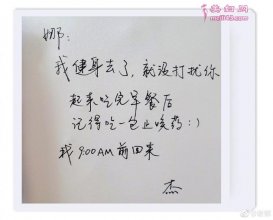 美妇网
meifu15.com
娜：
我健身去了，就没打扰你
起来吃完早餐后
记得吃一包止咳药:)
我900AM前回来
杰